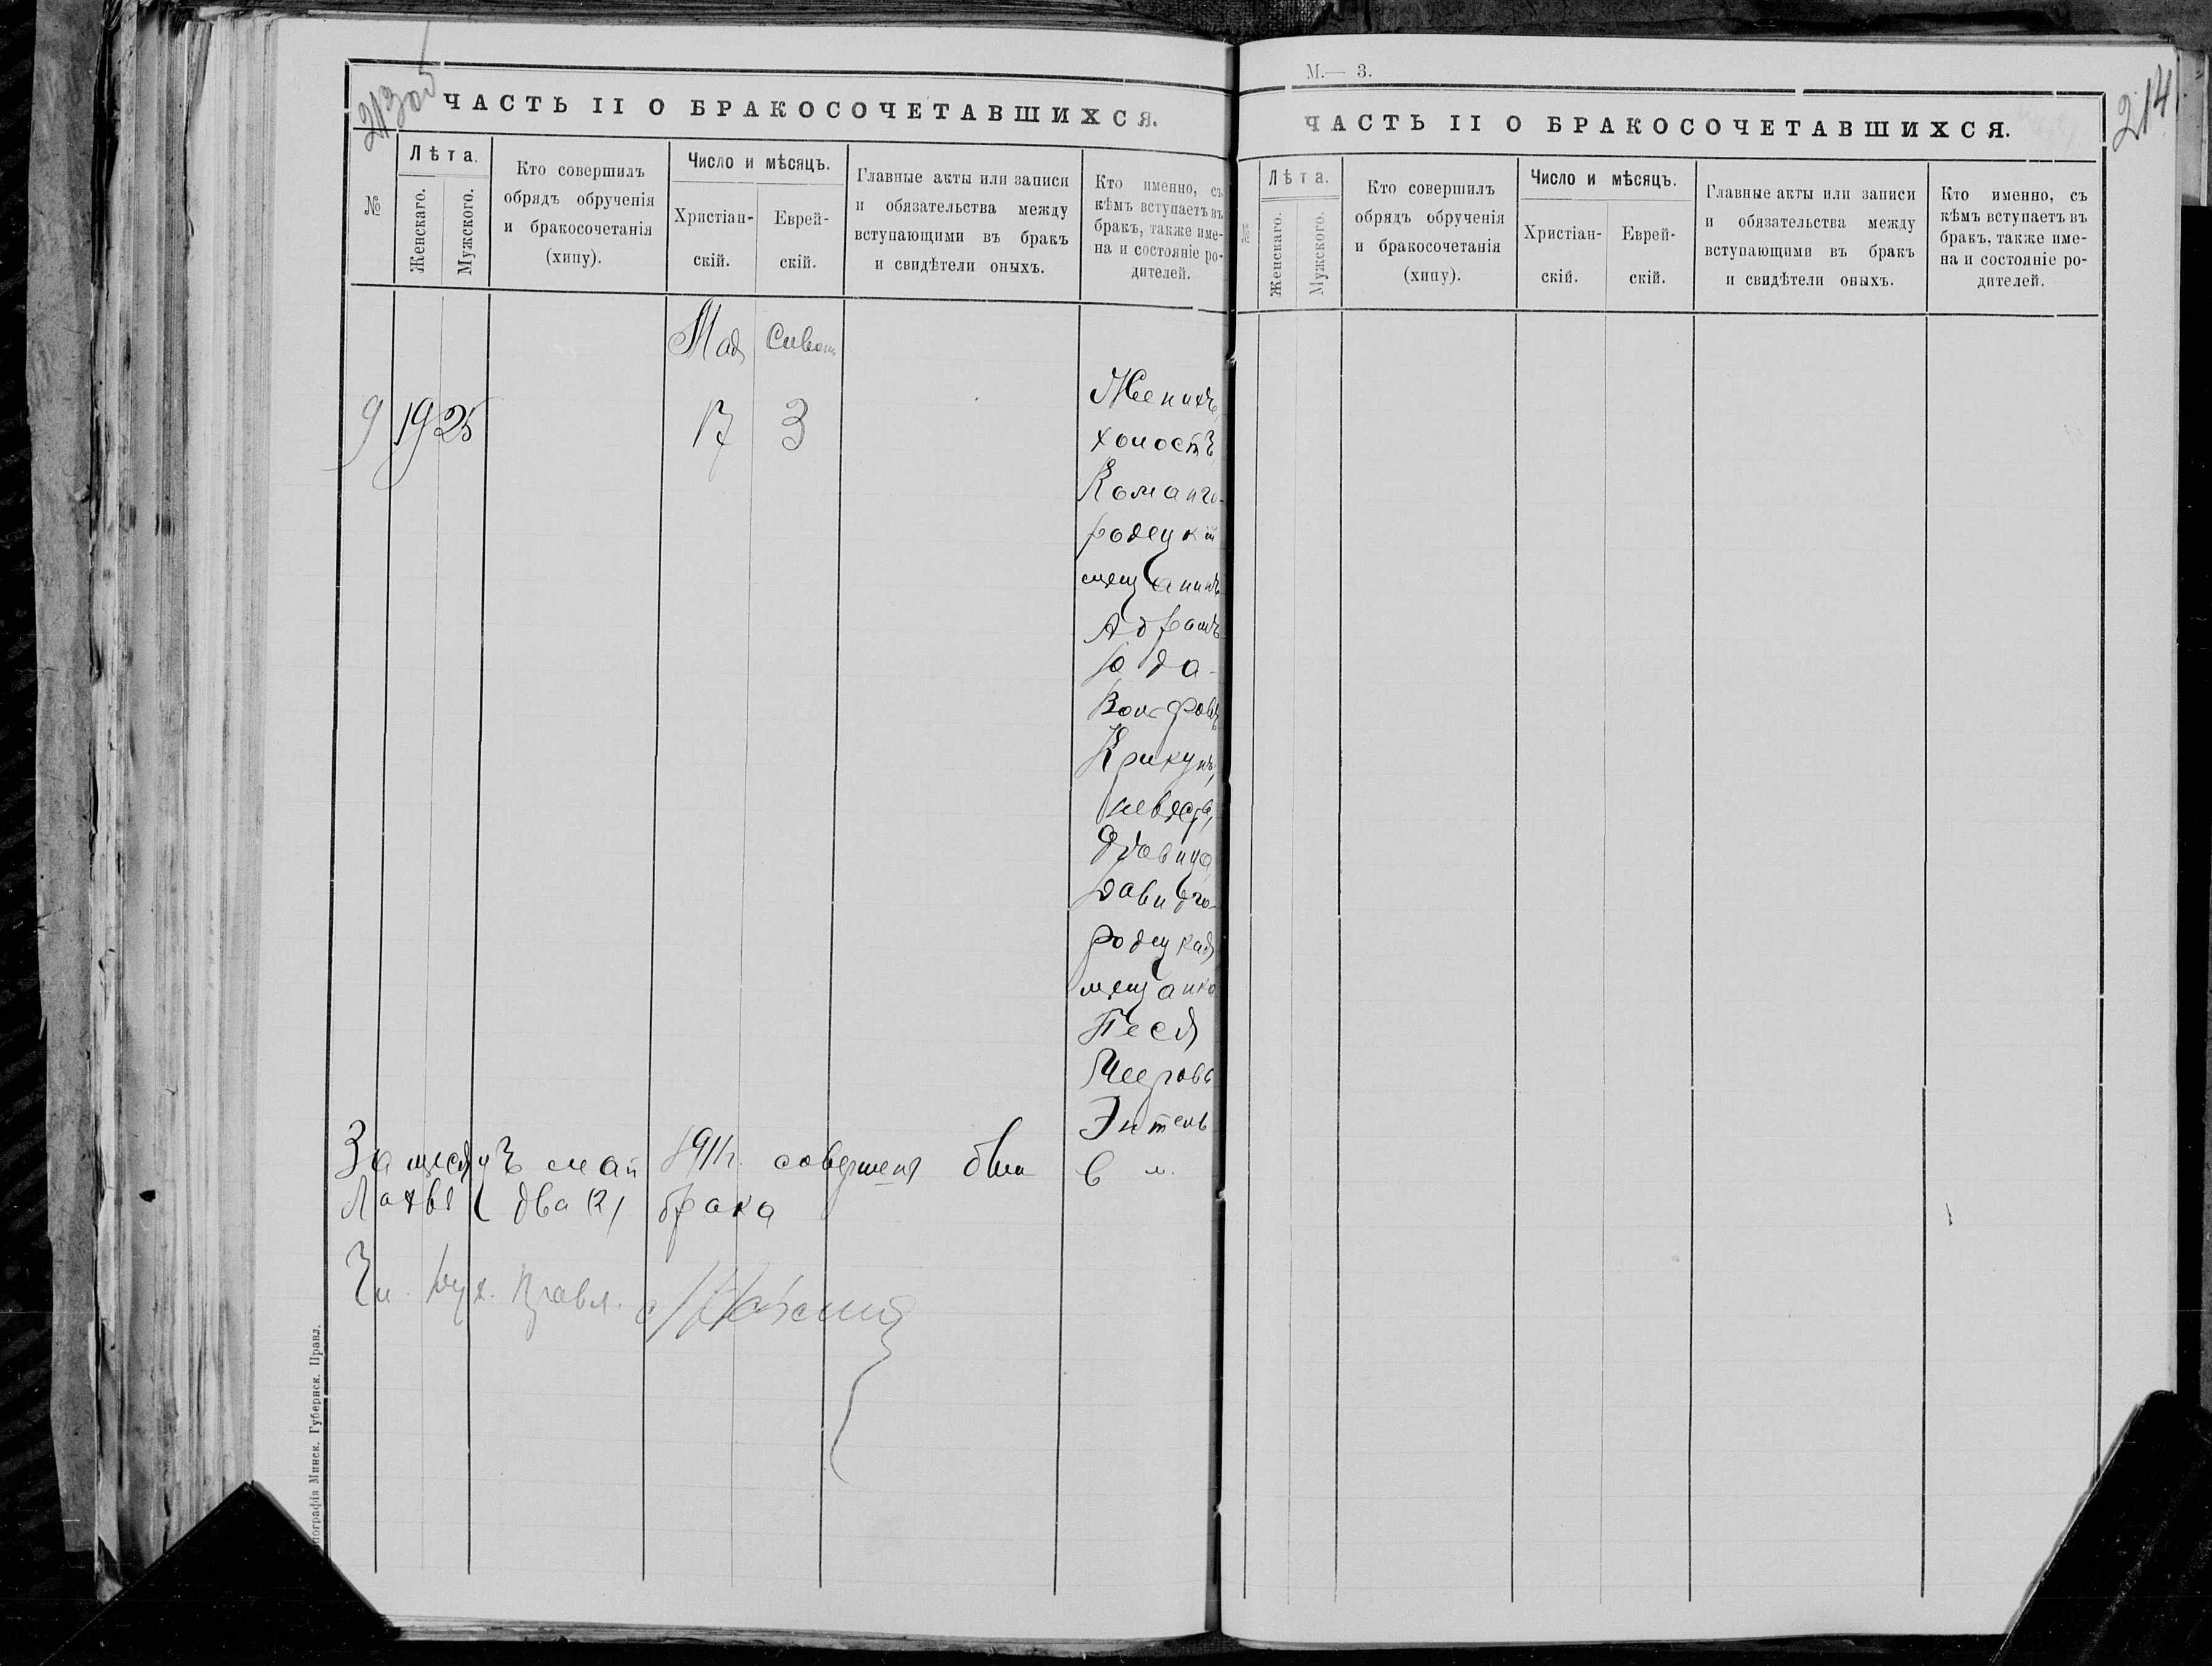 213 об
ЧАСТЬ II О БРАКОСОЧЕТАВШИХСЯ.
№
Лѣта.
Женскаго.
Мужского.
Кто совершилъ
обрядъ обрученія
и бракосочетанія
(хипу).
Число и мѣсяцъ.
Христіан-
скій.
Еврей-
скій.
Главные акты или записи
и обязательства между
вступающими въ бракъ
и свидѣтели оныхъ.
Кто именно, съ
кѣмъ вступаетъ въ
бракъ, также име-
на и состояніе ро-
дителей.
Мая Сивонъ
9 19 25 17 3
Женихъ,
холостъ,
Кожанго-
родецкій
мѣщанинъ
Абрамъ
Юда
Вольфовъ
Крикунъ,
невѣста,
дѣвица,
Давидго-
родецкая
мѣщанка
Песя
Меерова
Энтель
За мѣсяцъ май 1911 г. совершенъ был в м.
Лахвѣ два (2) брака
Чл. Дух. Правл.
Типографія Минск. Губернск. Правл.
М.— 3.
214
ЧАСТЬ II О БРАКОСОЧЕТАВШИХСЯ.
№
Лѣта.
Женскаго.
Мужского.
Кто совершилъ
обрядъ обрученія
и бракосочетанія
(хипу).
Число и мѣсяцъ.
Христіан-
скій.
Еврей-
скій.
Главные акты или записи
и обязательства между
вступающими въ бракъ
и свидѣтели оныхъ.
Кто именно, съ
кѣмъ вступаетъ въ
бракъ, также име-
на и состояніе ро-
дителей.